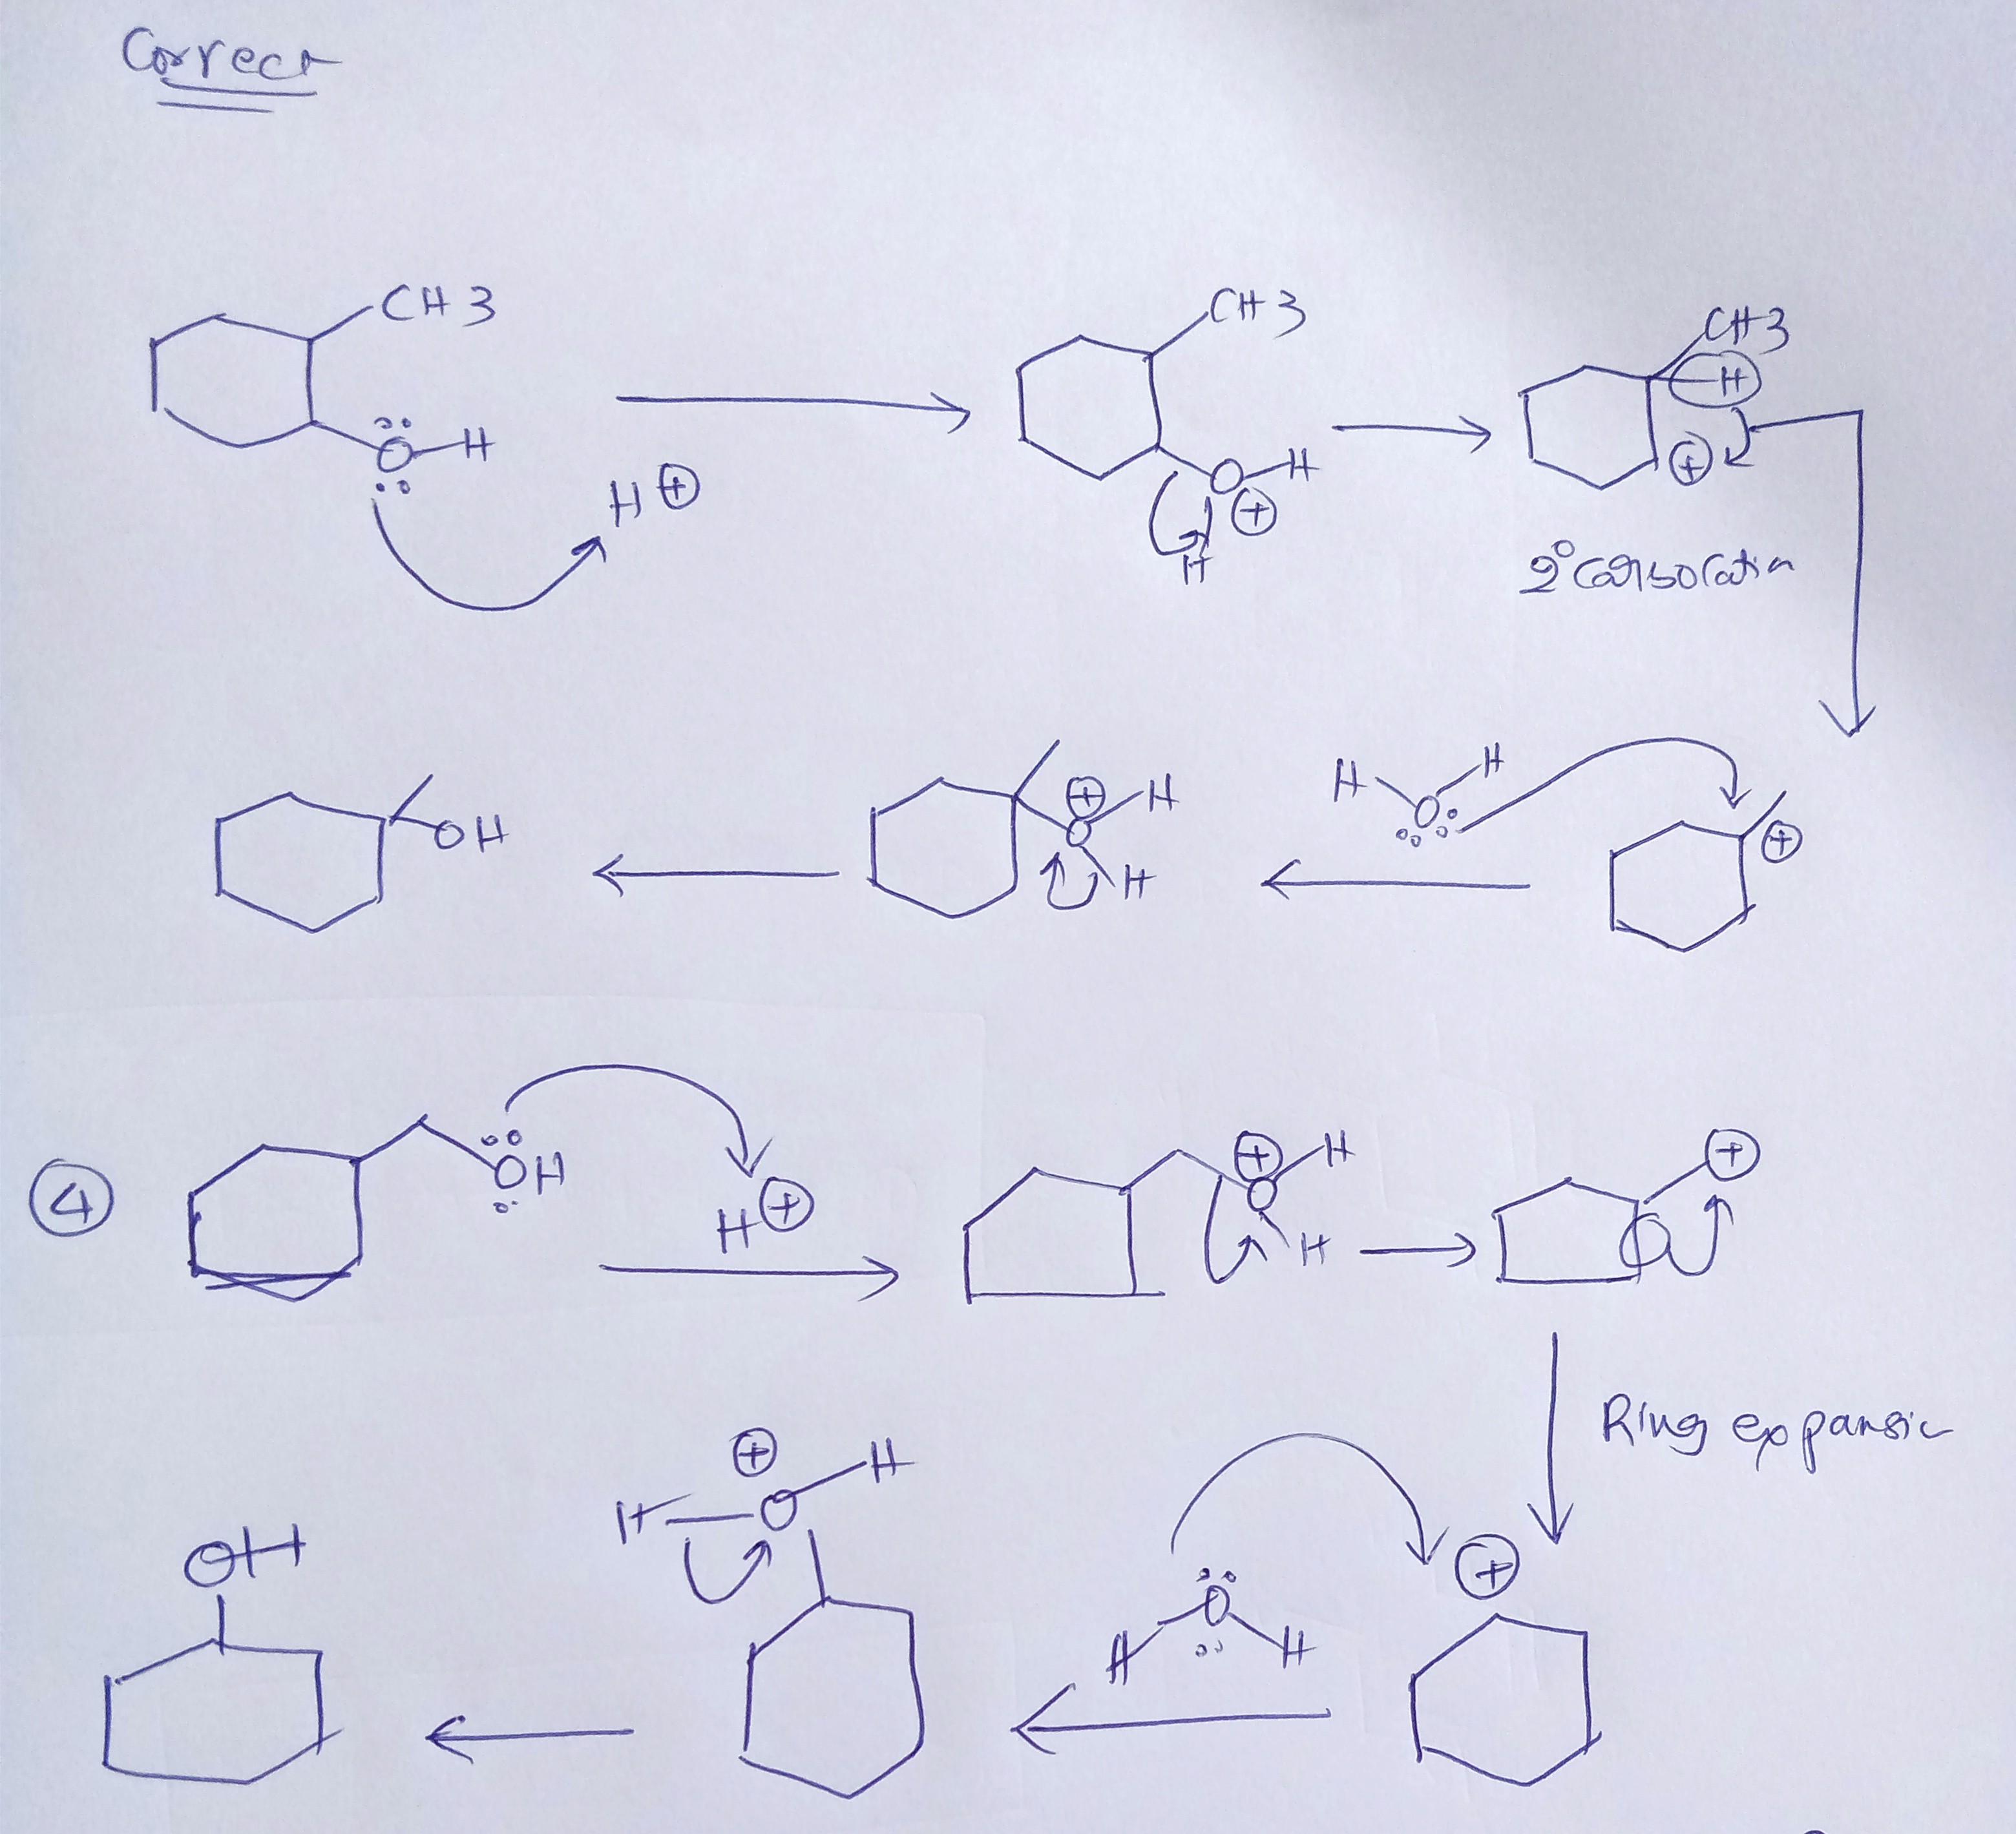 Correct
CH3
CH3
CH3
H
Ö H
H ⊕
O H
⊕
H
⊕
2° Carbocation
H O H
⊕ H
O
H
OH
⊕
④
OH
H ⊕
⊕ H
O
H
⊕
Ring expansion
⊕ H
H O
OH
O
H H
⊕